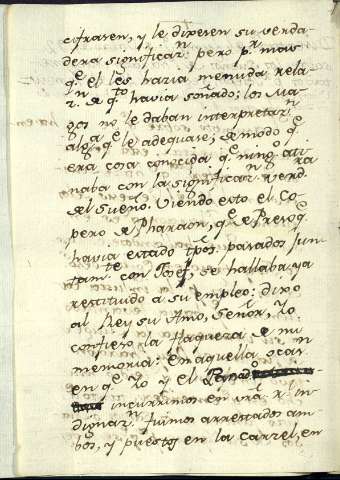 cifrasen, y le dixesen su verda-
dera significaⁿ. pero pʳ mas
qᵉ el les hazia menuda rela-
zⁿ. de qᵗᵒ havia soñado; los Ma-
gos no le daban interpretazⁿ
algᵃ qᵉ le adequase; de modo qᵉ
era cosa conocida qᵉ ningᵒ ati-
naba con la significazⁿ verdʳᵃ
del sueño. Viendo esto el Co-
pero de Pharaon, qᵉ de Presoqᵉ
havia estado tpos. pasados jun-
tamᵗᵉ con Josef, se hallaba ya
restituido a su empleo: dixo
al Rey su Amo, Señor, yo
confieso la flaqueza de mi
memoria: en aquella ocasⁿ
en qᵉ yo y el Panadᵒ
incurrimos en vrᵃ Rˡ in-
dignazⁿ. fuimos arrestados am-
bos, y puestos en la carzel, en